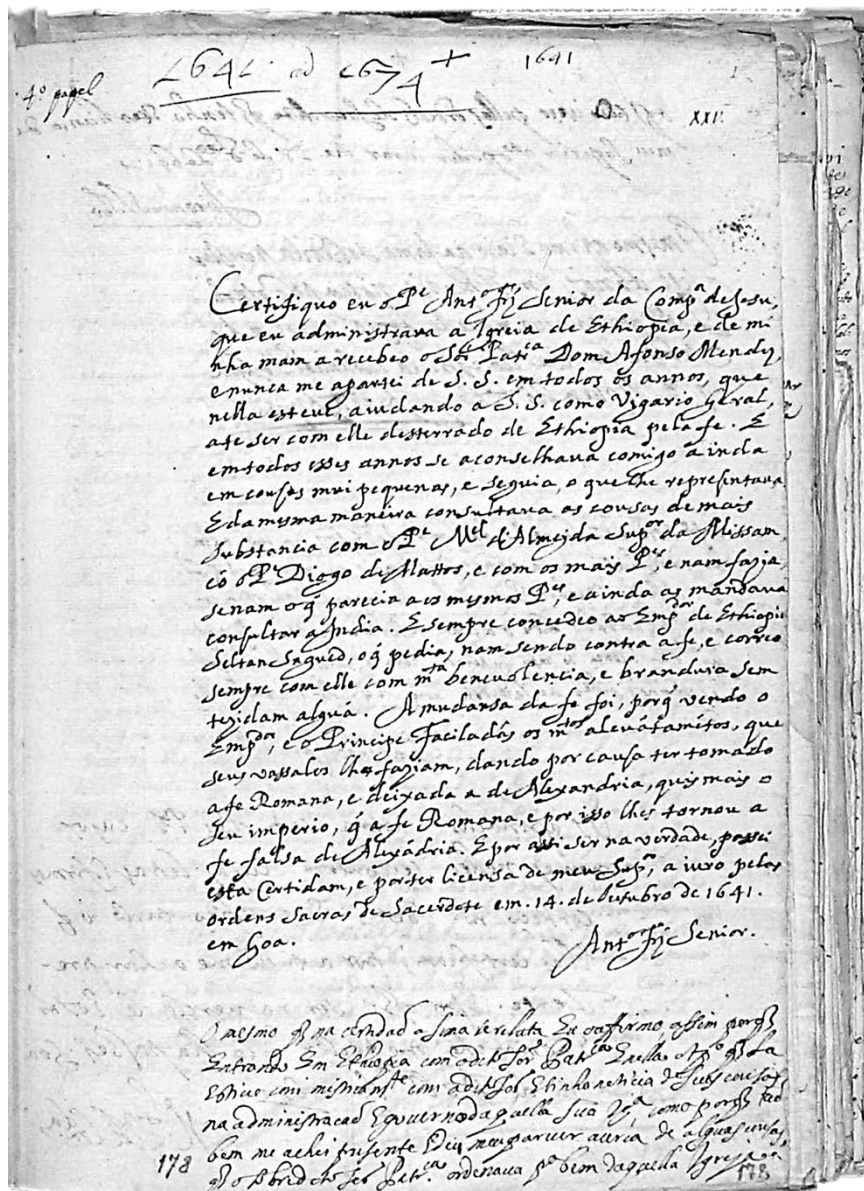 4º papel
1641 ad 1674
1641
XXII.
Certifiquo eu o Pe Antº Frž Senior da Compª de Jesu,
que eu administrava a Igreia de Ethiopia, e de mi
nha mam a recebeo o Sor Patrca Dom Afonso Mendez,
e nunca me apartei de S. S. em todos os annos, que
nella esteve, aiudando a S. S. como Vigario geral,
ate ser com elle desterrado de Ethiopia pela fe. E
em todos esses annos se aconselhava comigo ainda
em cousas mui pequenas, e seguia, o que lhe representava
E da mesma maneira consultava as cousas de mais
substancia com o Pe Mel d'Almeyda Supor da Missam,
cõ o Pe Diogo de Mattos, e com os mais Pes, e nam fazia,
senam o q̃ parecia aos mesmos Pes, e ainda as mandava
consultar a India. E sempre concedeo ao Empdor de Ethiopia
Seltan Sagued, o q̃ pedia, nam sendo contra a fe, e correo
sempre com elle com mta benevolencia, e brandura sem
tezidam algũa. A mudansa da fe foi, porq̃ vendo o
Empdor, e o Principe Faciladás os mtos alevãtamẽtos, que
seus vassalos lhes faziam, dando por causa ter tomado
a fe Romana, e deixada a de Alexandria, quis mais o
seu imperio, q̃ a fe Romana, e por isso lhes tornou a
fe falsa de Alexãdria. E por assi ser na verdade, passei
esta Certidam, e por ter licensa de meu Supor, a iuro pelas
ordens sacras de Sacerdote em. 14. de Outubro de 1641.
em Goa.
Antº Frž Senior.
O mesmo q̃ na certidaõ asima se relata Eu o affirmo assim porq̃
Entrando Em Ethiopia com o dito Sor Patrca
Estive com o dito Sor E tinha noticia de suas cousas
na administracaõ E governo daquella sua Igrª, como porq̃ tão
bem me achei presente de algũas cousas,
q̃ o sobredito Sor Patrca ordenava pª bem daquella Igreja
178
178